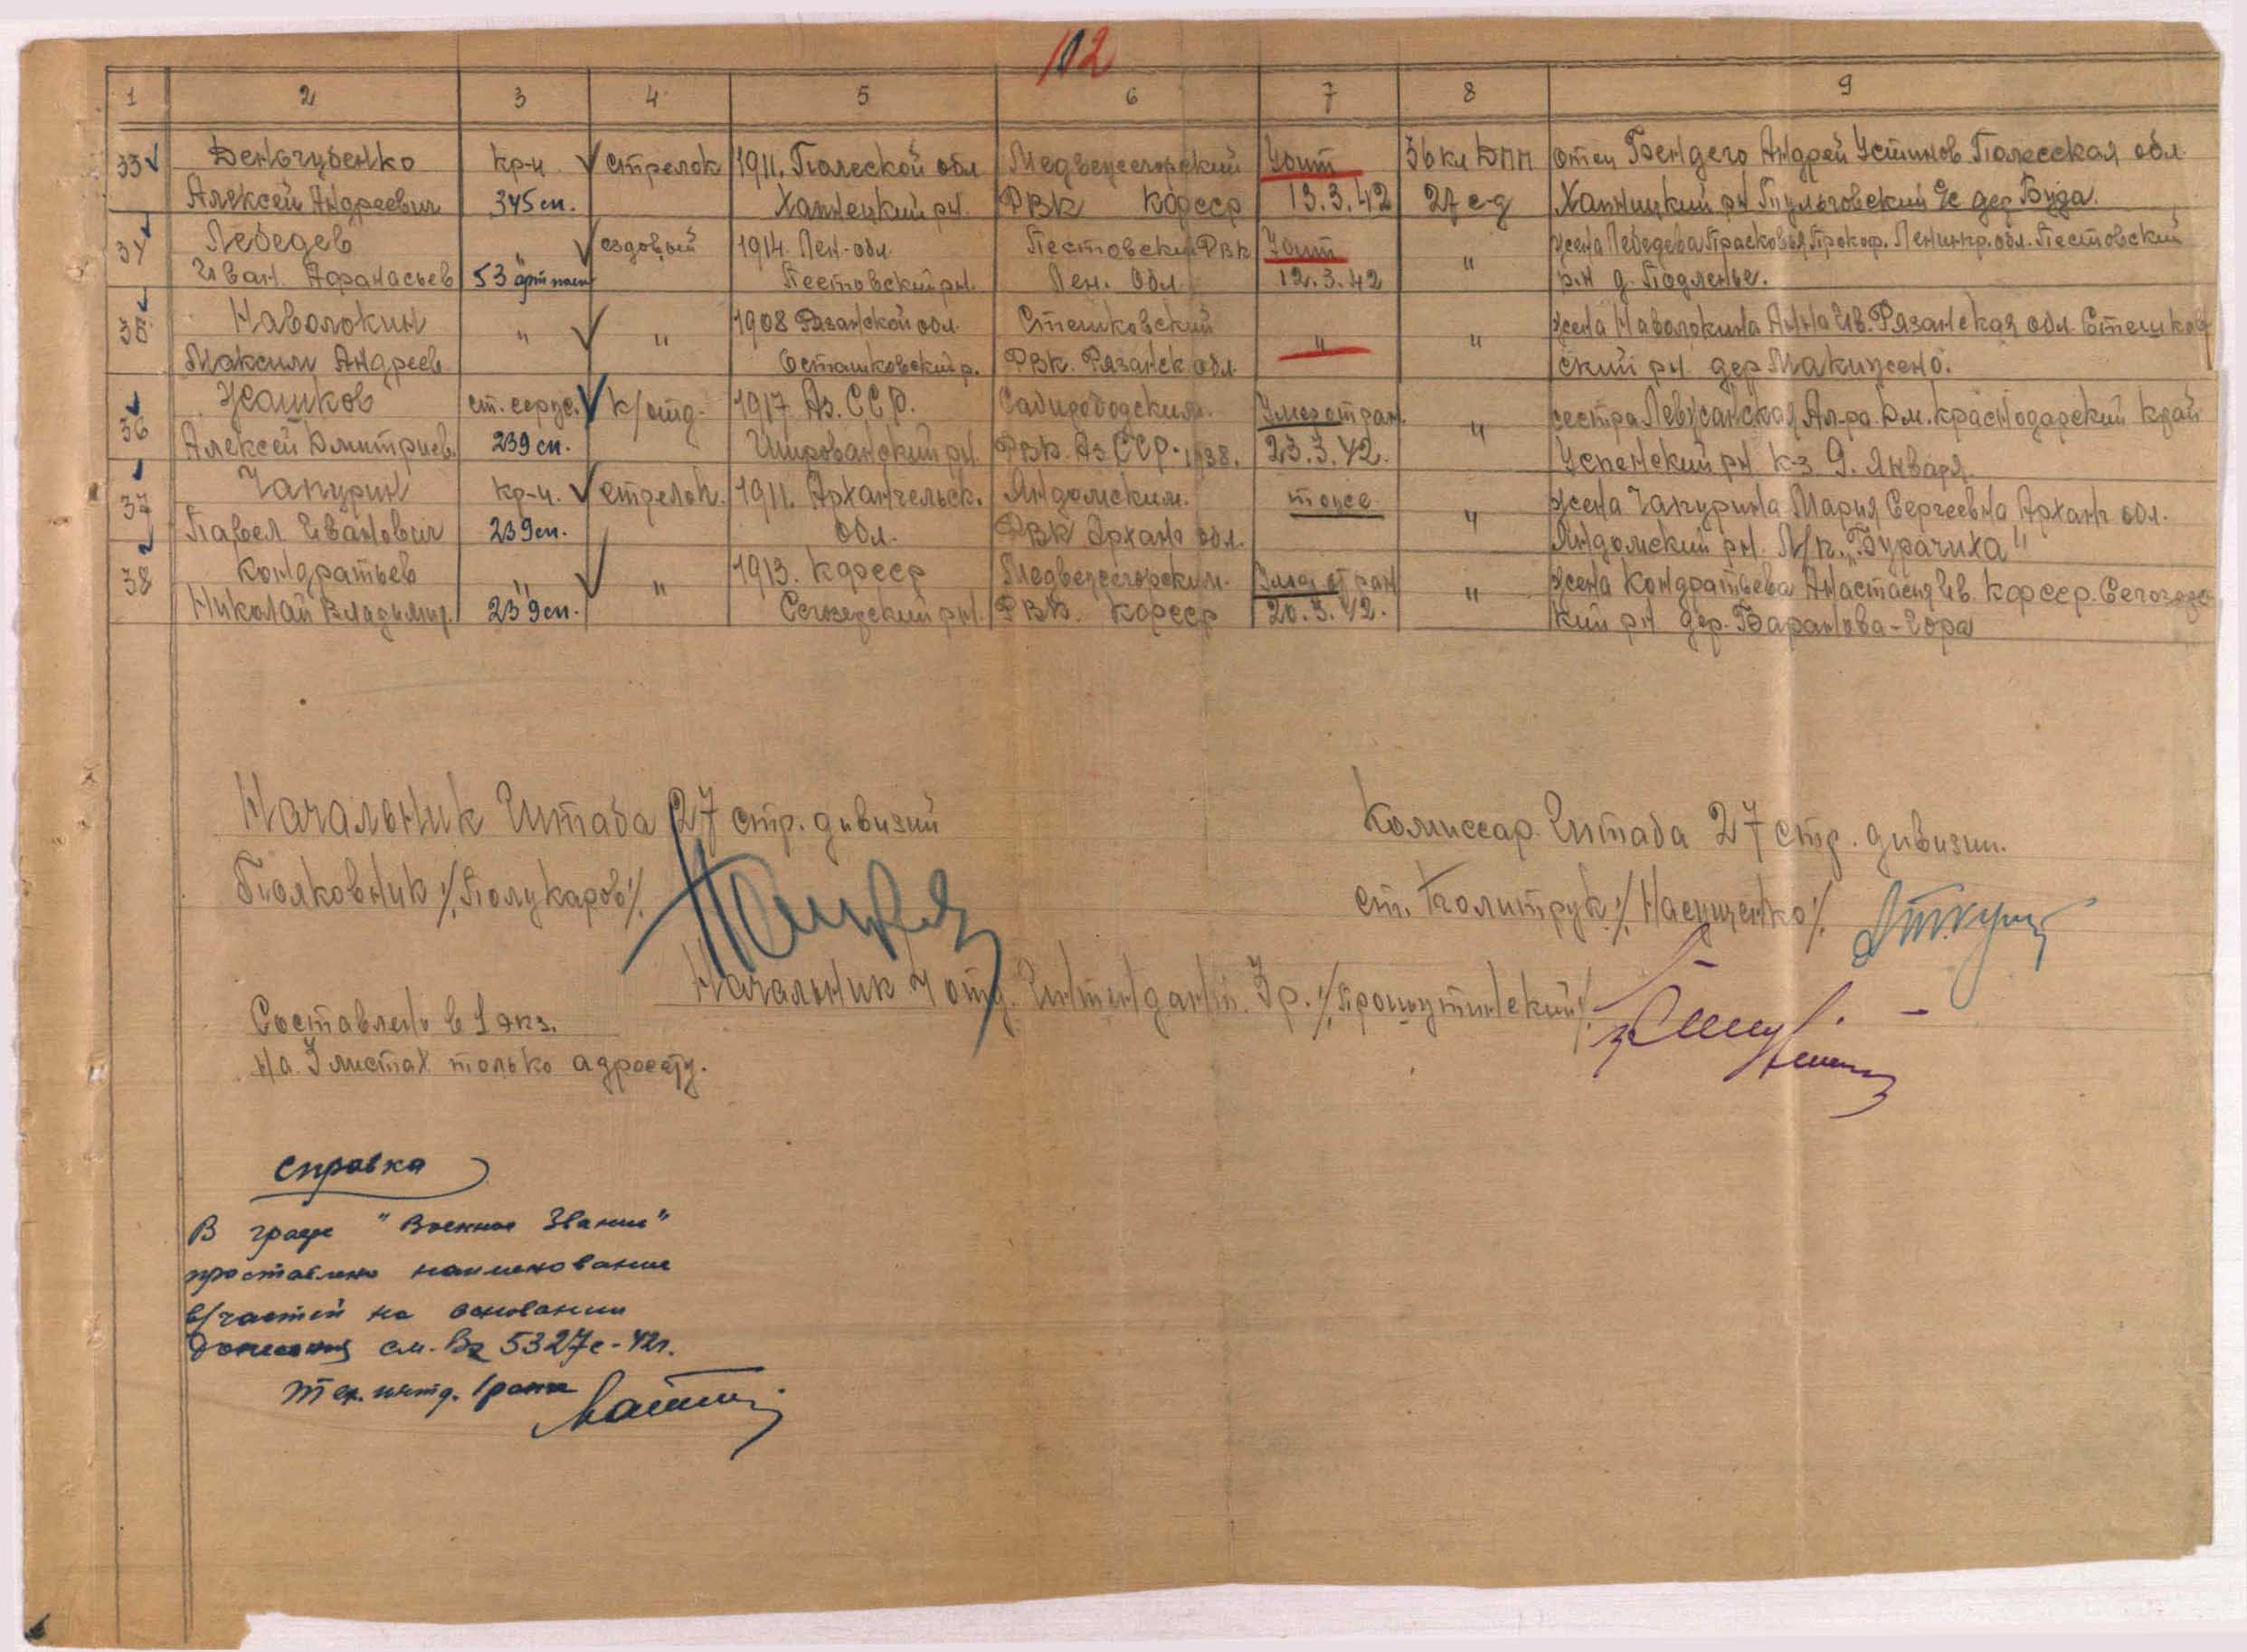 112
1 2 3 4 5 6 7 8 9
33 Деньгубенко кр-ц. стрелок 1911. Полеской обл Медвежегорский Убит 36 кл ДПП отец Бендего Андрей Устинов. Полесская обл
Алексей Андреевич 345 сп. Хапнецкий рн. РВК Кфсср 13.3.42 27 сд Хапницкий рн Сс дер Буда.
34 Лебедев " ездовый 1914. Лен-обл. Пестовский РВК Убит " жена Лебедева Прасковья Прокоф. Ленинг. обл. Пестовский
Иван. Афанасьев 53 арт Пестовский рн. Лен. Обл 12.3.42 р.н д. Подленье.
35 Наволокин " " 1908 Рязанской обл. Стешковский " " жена Наволокина Анна Ив. Рязанская обл. Стешков
Максим Андреев. Осташковский р. РВК. Рязанск обл. ский рн. дер Макижено.
36 Жашков ст. серж. к/отд. 1917 Аз. ССР. Сабирободским. Умер от ран. " сестра Ал-ра Дм. Краснодарский край
Алексей Дмитриев. 239 сп. рн. РВК. Аз ССР. 1938. 23.3.42. Успенский рн к-з 9. Января.
37 Чапурин кр-ц. стрелок. 1911. Архангельск. Яндомским. тоже " жена Чапурина Мария Сергеевна Арханг обл.
Павел Иванович 239 сп. обл. РВК Арханг обл. Яндомский рн. Л/п. „Бурачиха"
38 Кондратьев " " 1913. Кфсср Медвежегорским. Умер от ран " жена Кондратьева Анастасия Ив. Кфсср. Сегозерс
Николай Владимир. 239 сп. Сегозерский рн. РВК. Кфсср 20.3.42. кий рн дер. Баранова-Гора
Начальник Штаба 27 стр. дивизий
Полковник /Полукаров/.
Комиссар. Штаба 27 стр. дивизии.
ст. Политрук /Насищенко/.
Начальник 4 отд. Интендант. 3 р. /Прошутинский/.
Составлено в 1 экз.
на 3 листах только адресату.
Справка
В графе "Военное Звание"
проставлено наименование
в/частей на основании
донесения см. Вх 5327с-42г.
тех. интд. 1 ранга